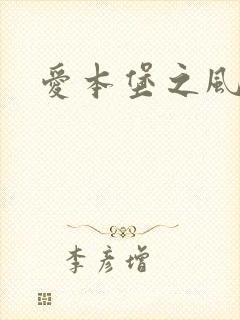 愛本堡之風
李彦增